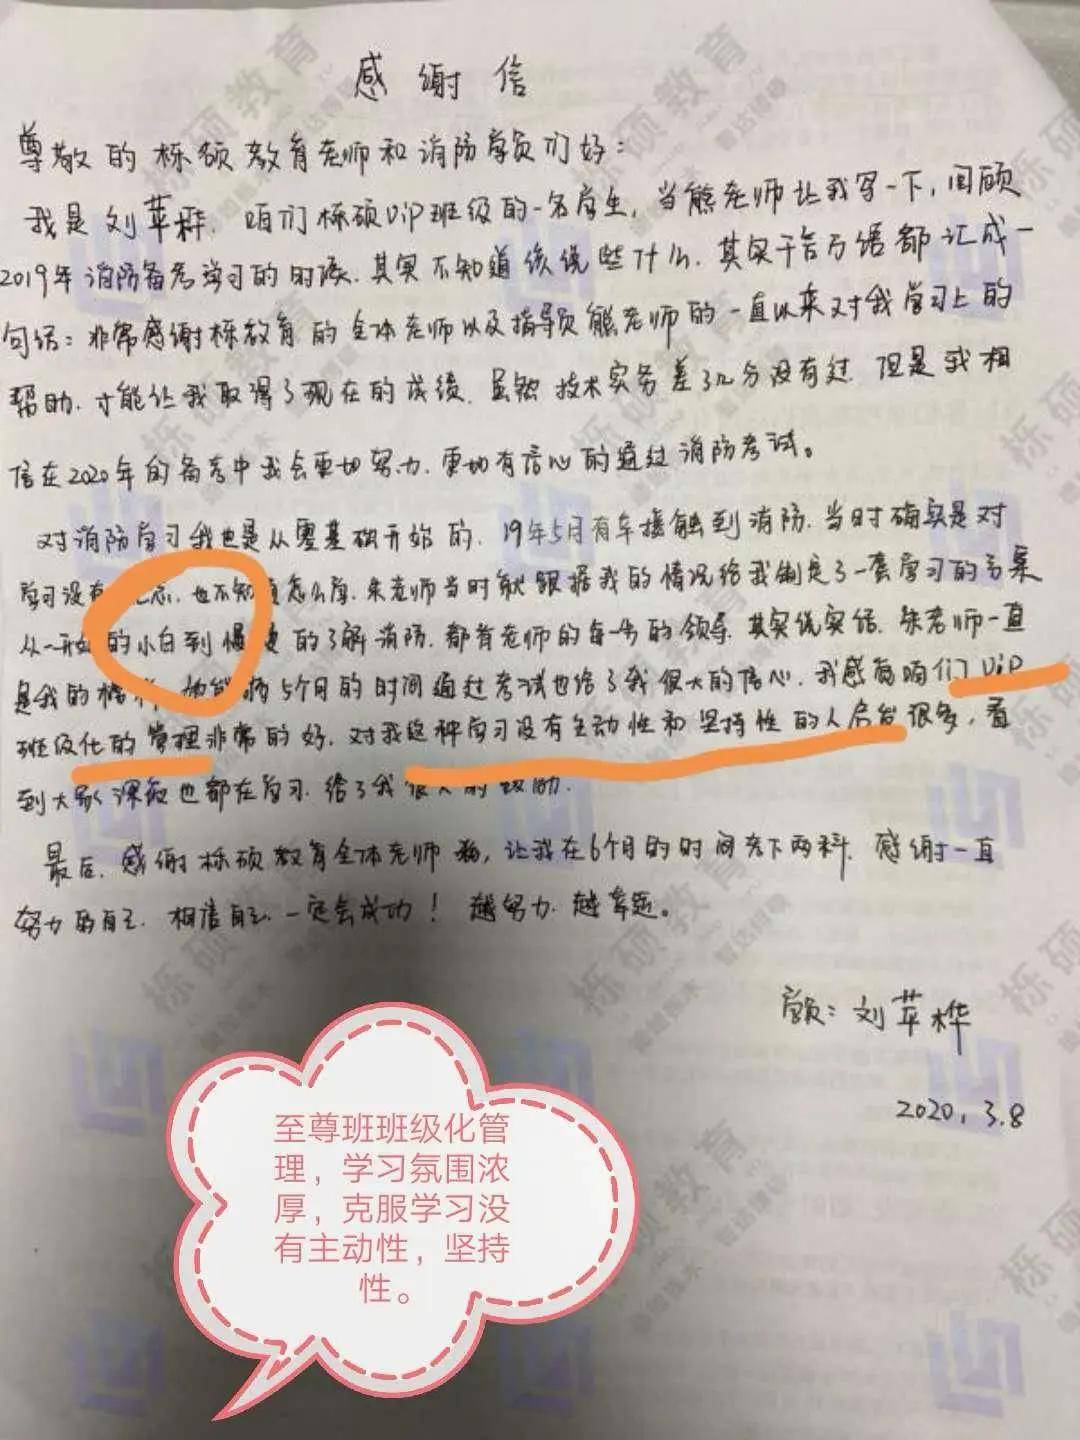 感谢信
尊敬的栎硕教育老师和消防学员们好：
我是刘苹桦，咱们栎硕ViP班级的一名学生，当熊老师让我写一下，回顾
2019年消防备考学习的时候，其实不知道该说些什么，其实千言万语都汇成一
句话：非常感谢栎教育的全体老师以及指导员熊老师的一直以来对我学习上的
帮助，才能让我取得了现在的成绩，虽然技术实务差了几分没有过，但是我相
信在2020年的备考中我会更加努力，更加有信心的通过消防考试。
对消防学习我也是从零基础开始的，19年5月有幸接触到消防，当时确实是对
学习没有 也不知道怎么学，朱老师当时就跟据我的情况给我制定了一套学习的方案
从一开始的小白到慢慢的了解消防，都有老师的每一步的领导，其实说实话，朱老师一直
是我的榜样，他能 5个月的时间通过考试也给了我很大的信心，我感觉咱们ViP
班级化的管理非常的好，对我这种学习没有主动性和坚持性的人启发很多，看
到大家深夜也都在学习，给了我很大的鼓励。
最后，感谢栎硕教育全体老师 让我在6个月的时间拿下两科，感谢一直
努力的自己，相信自己，一定会成功！越努力，越幸运。
学员：刘苹桦
2020.3.8
至尊班班级化管
理，学习氛围浓
厚，克服学习没
有主动性，坚持
性。
栎硕教育